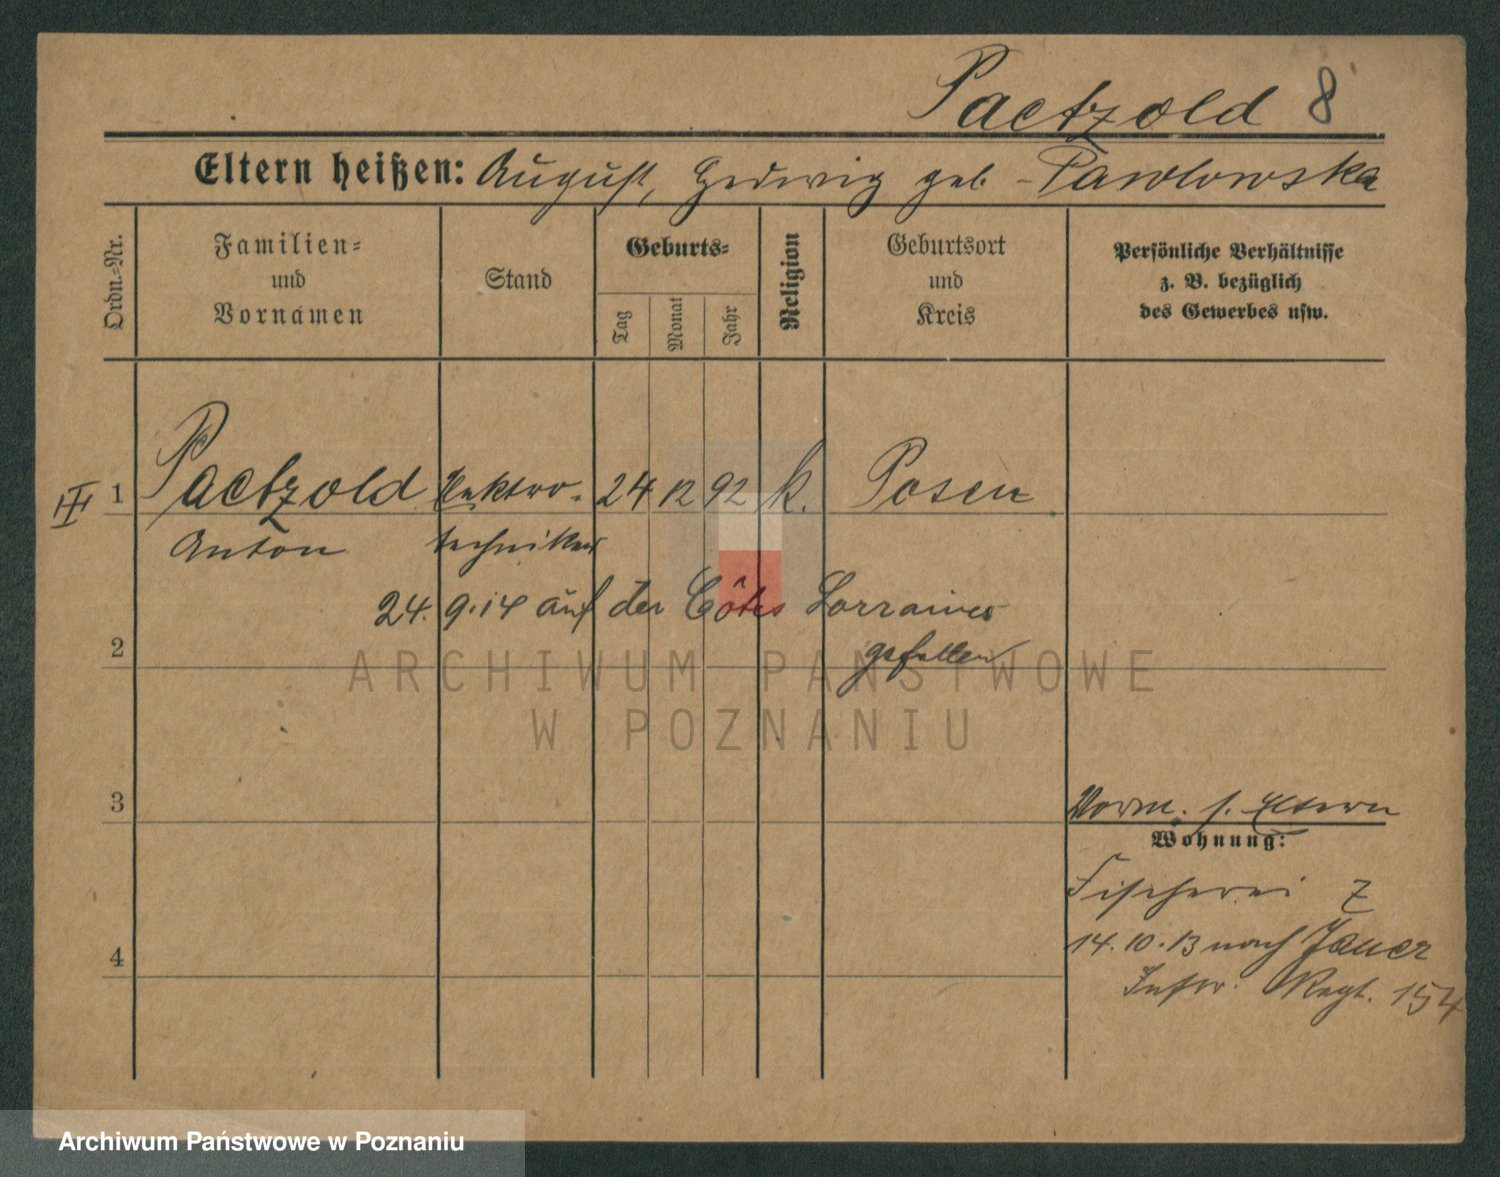 Paetzold 8
Eltern heißen: August, Hedwig geb. Pawlowska
Ordn.=Nr.
Familien=
und
Vornamen
Stand
Geburts=
Tag
Monat
Jahr
Religion
Geburtsort
und
Kreis
Persönliche Verhältnisse
z. B. bezüglich
des Gewerbes usw.
III 1 Paetzold Elektro- 24 12 92 k. Posen
Anton techniker
24. 9. 14 auf der Côtes Lorraines
2 gefallen
3 Vorm. s. Eltern
Wohnung:
Fischerei 7
14. 10. 13 nach Jauer
4 Inftr. Regt. 154
ARCHIWUM PAŃSTWOWE
W POZNANIU
Archiwum Państwowe w Poznaniu